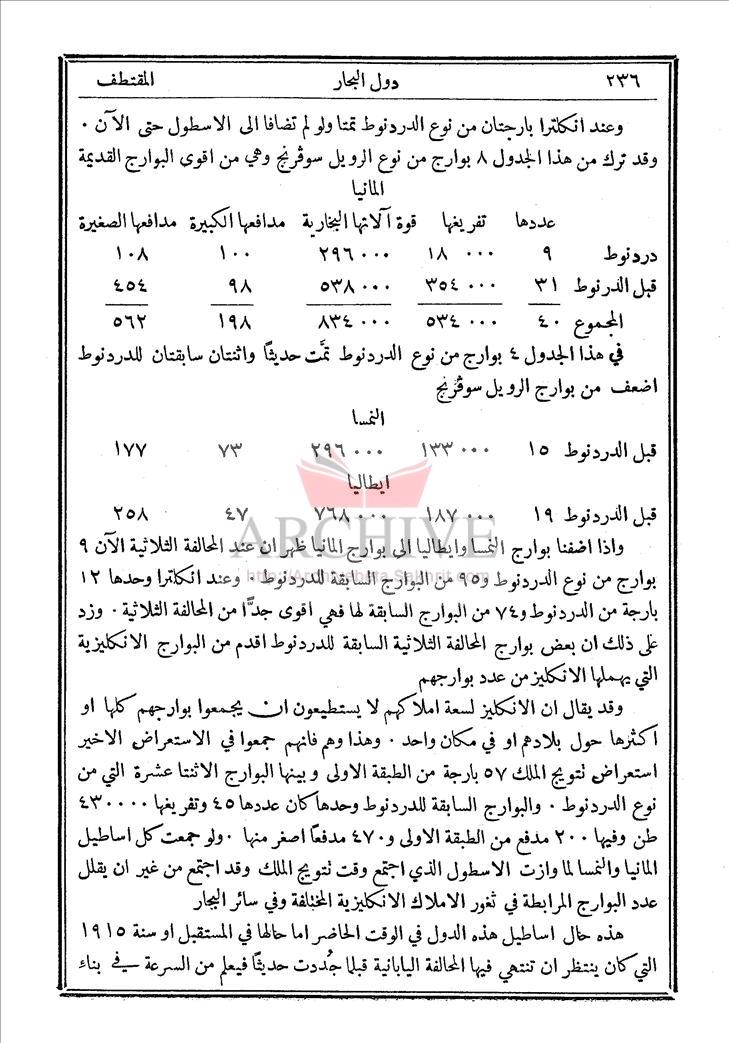 ٢٣٦ دول البحار المقتطف
وعند انكلترا بارجتان من نوع الدردنوط تمتا ولو لم تضافا الى الاسطول حتى الآن ٠
وقد ترك من هذا الجدول ٨ بوارج من نوع الرويل سوڤرنج وهي من اقوى البوارج القديمة
المانيا
عددها تفريغها قوة آلاتها البخارية مدافعها الكبيرة مدافعها الصغيرة
دردنوط ٩ ١٨٠٠٠٠ ٢٩٦٠٠٠ ١٠٠ ١٠٨
قبل الدرنوط ٣١ ٣٥٤٠٠٠ ٥٣٨٠٠٠ ٩٨ ٤٥٤
المجموع ٤٠ ٥٣٤٠٠٠ ٨٣٤٠٠٠ ١٩٨ ٥٦٢
في هذا الجدول ٤ بوارج من نوع الدردنوط تمَّت حديثًا واثنتان سابقتان للدردنوط
اضعف من بوارج الرويل سوڤرنج
النمسا
قبل الدردنوط ١٥ ١٣٣٠٠٠ ٢٩٦٠٠٠ ٧٣ ١٧٧
ايطاليا
قبل الدردنوط ١٩ ١٨٧٠٠٠ ٧٦٨٠٠٠ ٤٧ ٢٥٨
ARCHIVE
واذا اضفنا بوارج النمسا وايطاليا الى بوارج المانيا ظهر ان عند المحالفة الثلاثية الآن ٩
بوارج من نوع الدردنوط و٩٥ من البوارج السابقة للدردنوط ٠ وعند انكلترا وحدها ١٢
بارجة من الدردنوط و٧٤ من البوارج السابقة لها فهي اقوى جدًّا من المحالفة الثلاثية ٠ وزد
على ذلك ان بعض بوارج المحالفة الثلاثية السابقة للدردنوط اقدم من البوارج الانكليزية
التي يهملها الانكليز من عدد بوارجهم
وقد يقال ان الانكليز لسعة املاكهم لا يستطيعون ان يجمعوا بوارجهم كلها او
اكثرها حول بلادهم او في مكان واحد ٠ وهذا وهم فانهم جمعوا في الاستعراض الاخير
استعراض تتويج الملك ٥٧ بارجة من الطبقة الاولى وبينها البوارج الاثنتا عشرة التي من
نوع الدردنوط ٠ والبوارج السابقة للدردنوط وحدها كان عددها ٤٥ وتفريغها ٤٣٠٠٠٠
طن وفيها ٢٠٠ مدفع من الطبقة الاولى و٤٧٠ مدفعًا اصغر منها ٠ ولو جمعت كل اساطيل
المانيا والنمسا لما وازت الاسطول الذي اجتمع وقت تتويج الملك وقد اجتمع من غير ان يقلل
عدد البوارج المرابطة في ثغور الاملاك الانكليزية المختلفة وفي سائر البحار
هذه حال اساطيل هذه الدول في الوقت الحاضر اما حالها في المستقبل او سنة ١٩١٥
التي كان ينتظر ان تنتهي فيها المحالفة اليابانية قبلما جُددت حديثًا فيعلم من السرعة في بناء